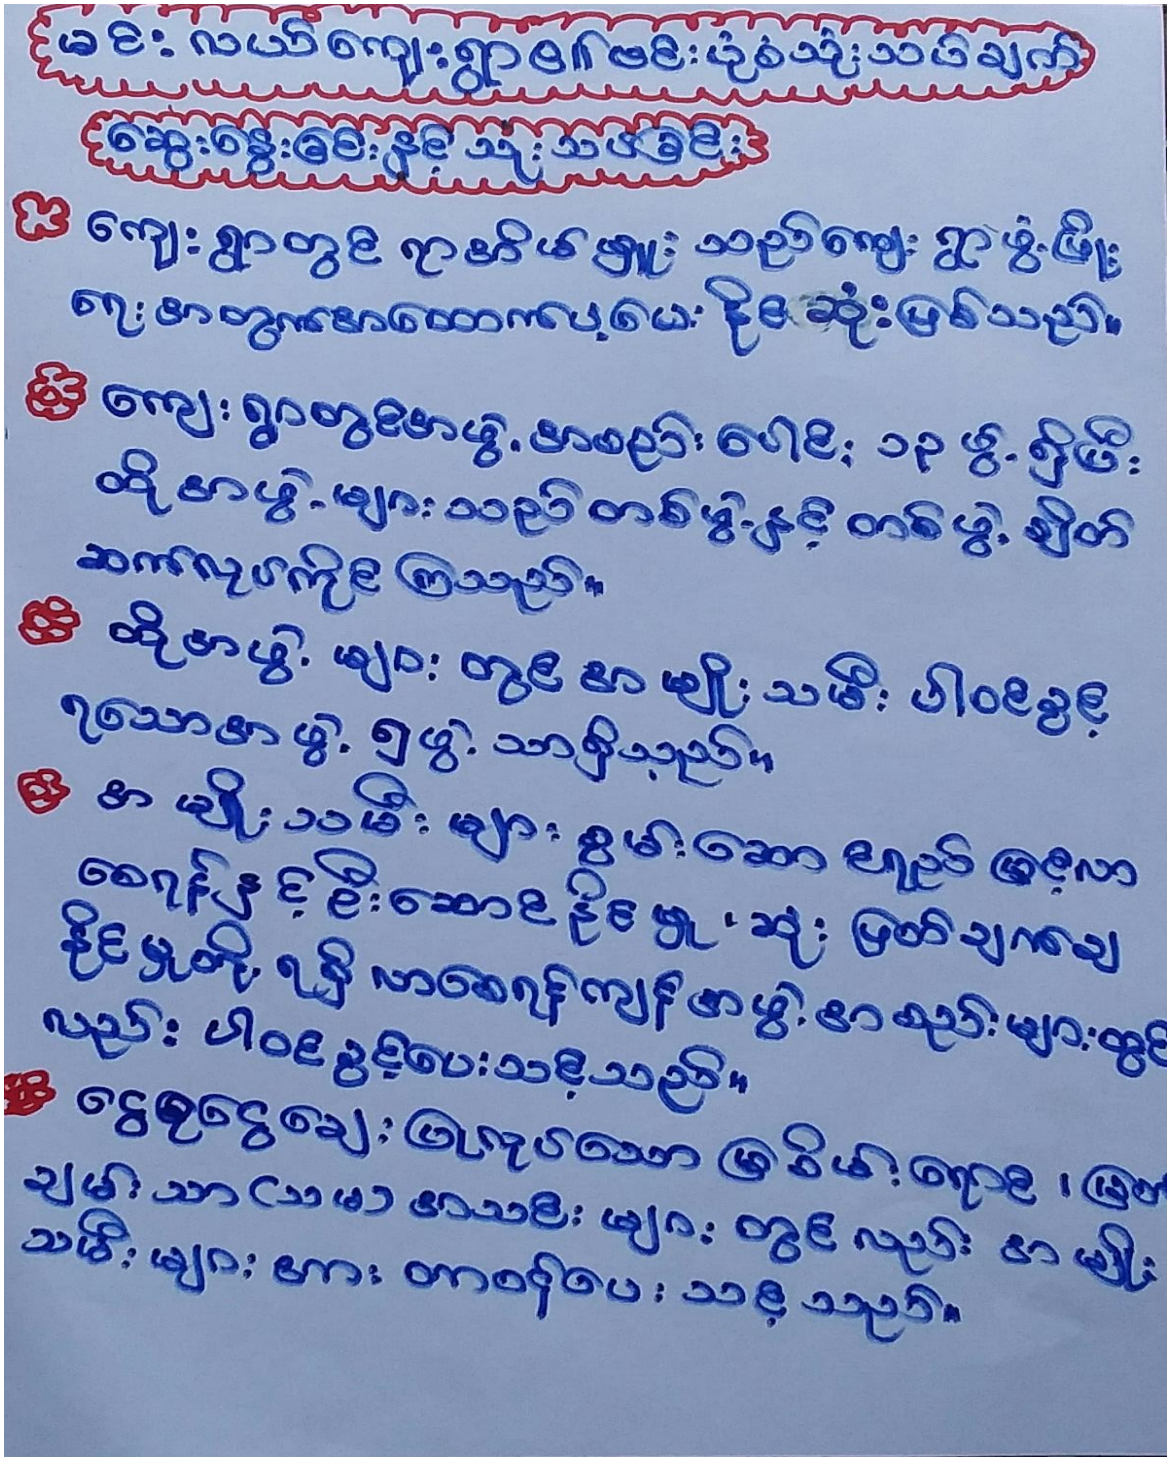 မင်းလယ်ကျေးရွာ၏ဗင်းပုံစံသုံးသပ်ချက်
ဆွေးနွေးခြင်းနှင့်သုံးသပ်ခြင်း
ကျေးရွာတွင် ရာအိမ်မှူး သည်ကျေးရွာဖွံ့ဖြိုး
ရေးအတွက်အထောက်ပံ့ပေး နိုင်ဆုံးဖြစ်သည်။
ကျေးရွာတွင်အဖွဲ့အစည်းပေါင်း ၁၃ ဖွဲ့ရှိပြီး
ထိုအဖွဲ့များသည်တစ်ဖွဲ့နှင့် တစ်ဖွဲ့ချိတ်
ဆက်လုပ်ကိုင်ကြသည်။
ထိုအဖွဲ့ များ တွင် အမျိုးသမီး ပါဝင်ခွင့်
ရသောအဖွဲ့ ၅ဖွဲ့ သာရှိသည်။
အမျိုးသမီးများ စွမ်းဆောင်ရည် မြင့်လာ
စေရန်နှင့်ဦးဆောင်နိုင်မှု၊ ဆုံးဖြတ်ချက်ချ
နိုင်မှုတို့ ရရှိလာစေရန်ကျန်အဖွဲ့အစည်းများတွင်
လည်း ပါဝင်ခွင့်ပေးသင့်သည်။
ငွေစုငွေချေးပြုလုပ်သော မြစိမ်းရောင်၊ မြတ်
ချမ်းသာ(သမ) အသင်းများတွင်လည်း အမျိုး
သမီးများအား တာဝန်ပေးသင့်သည်။